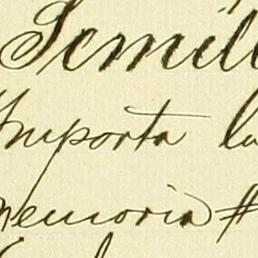 Semill
Importa la
memoria #